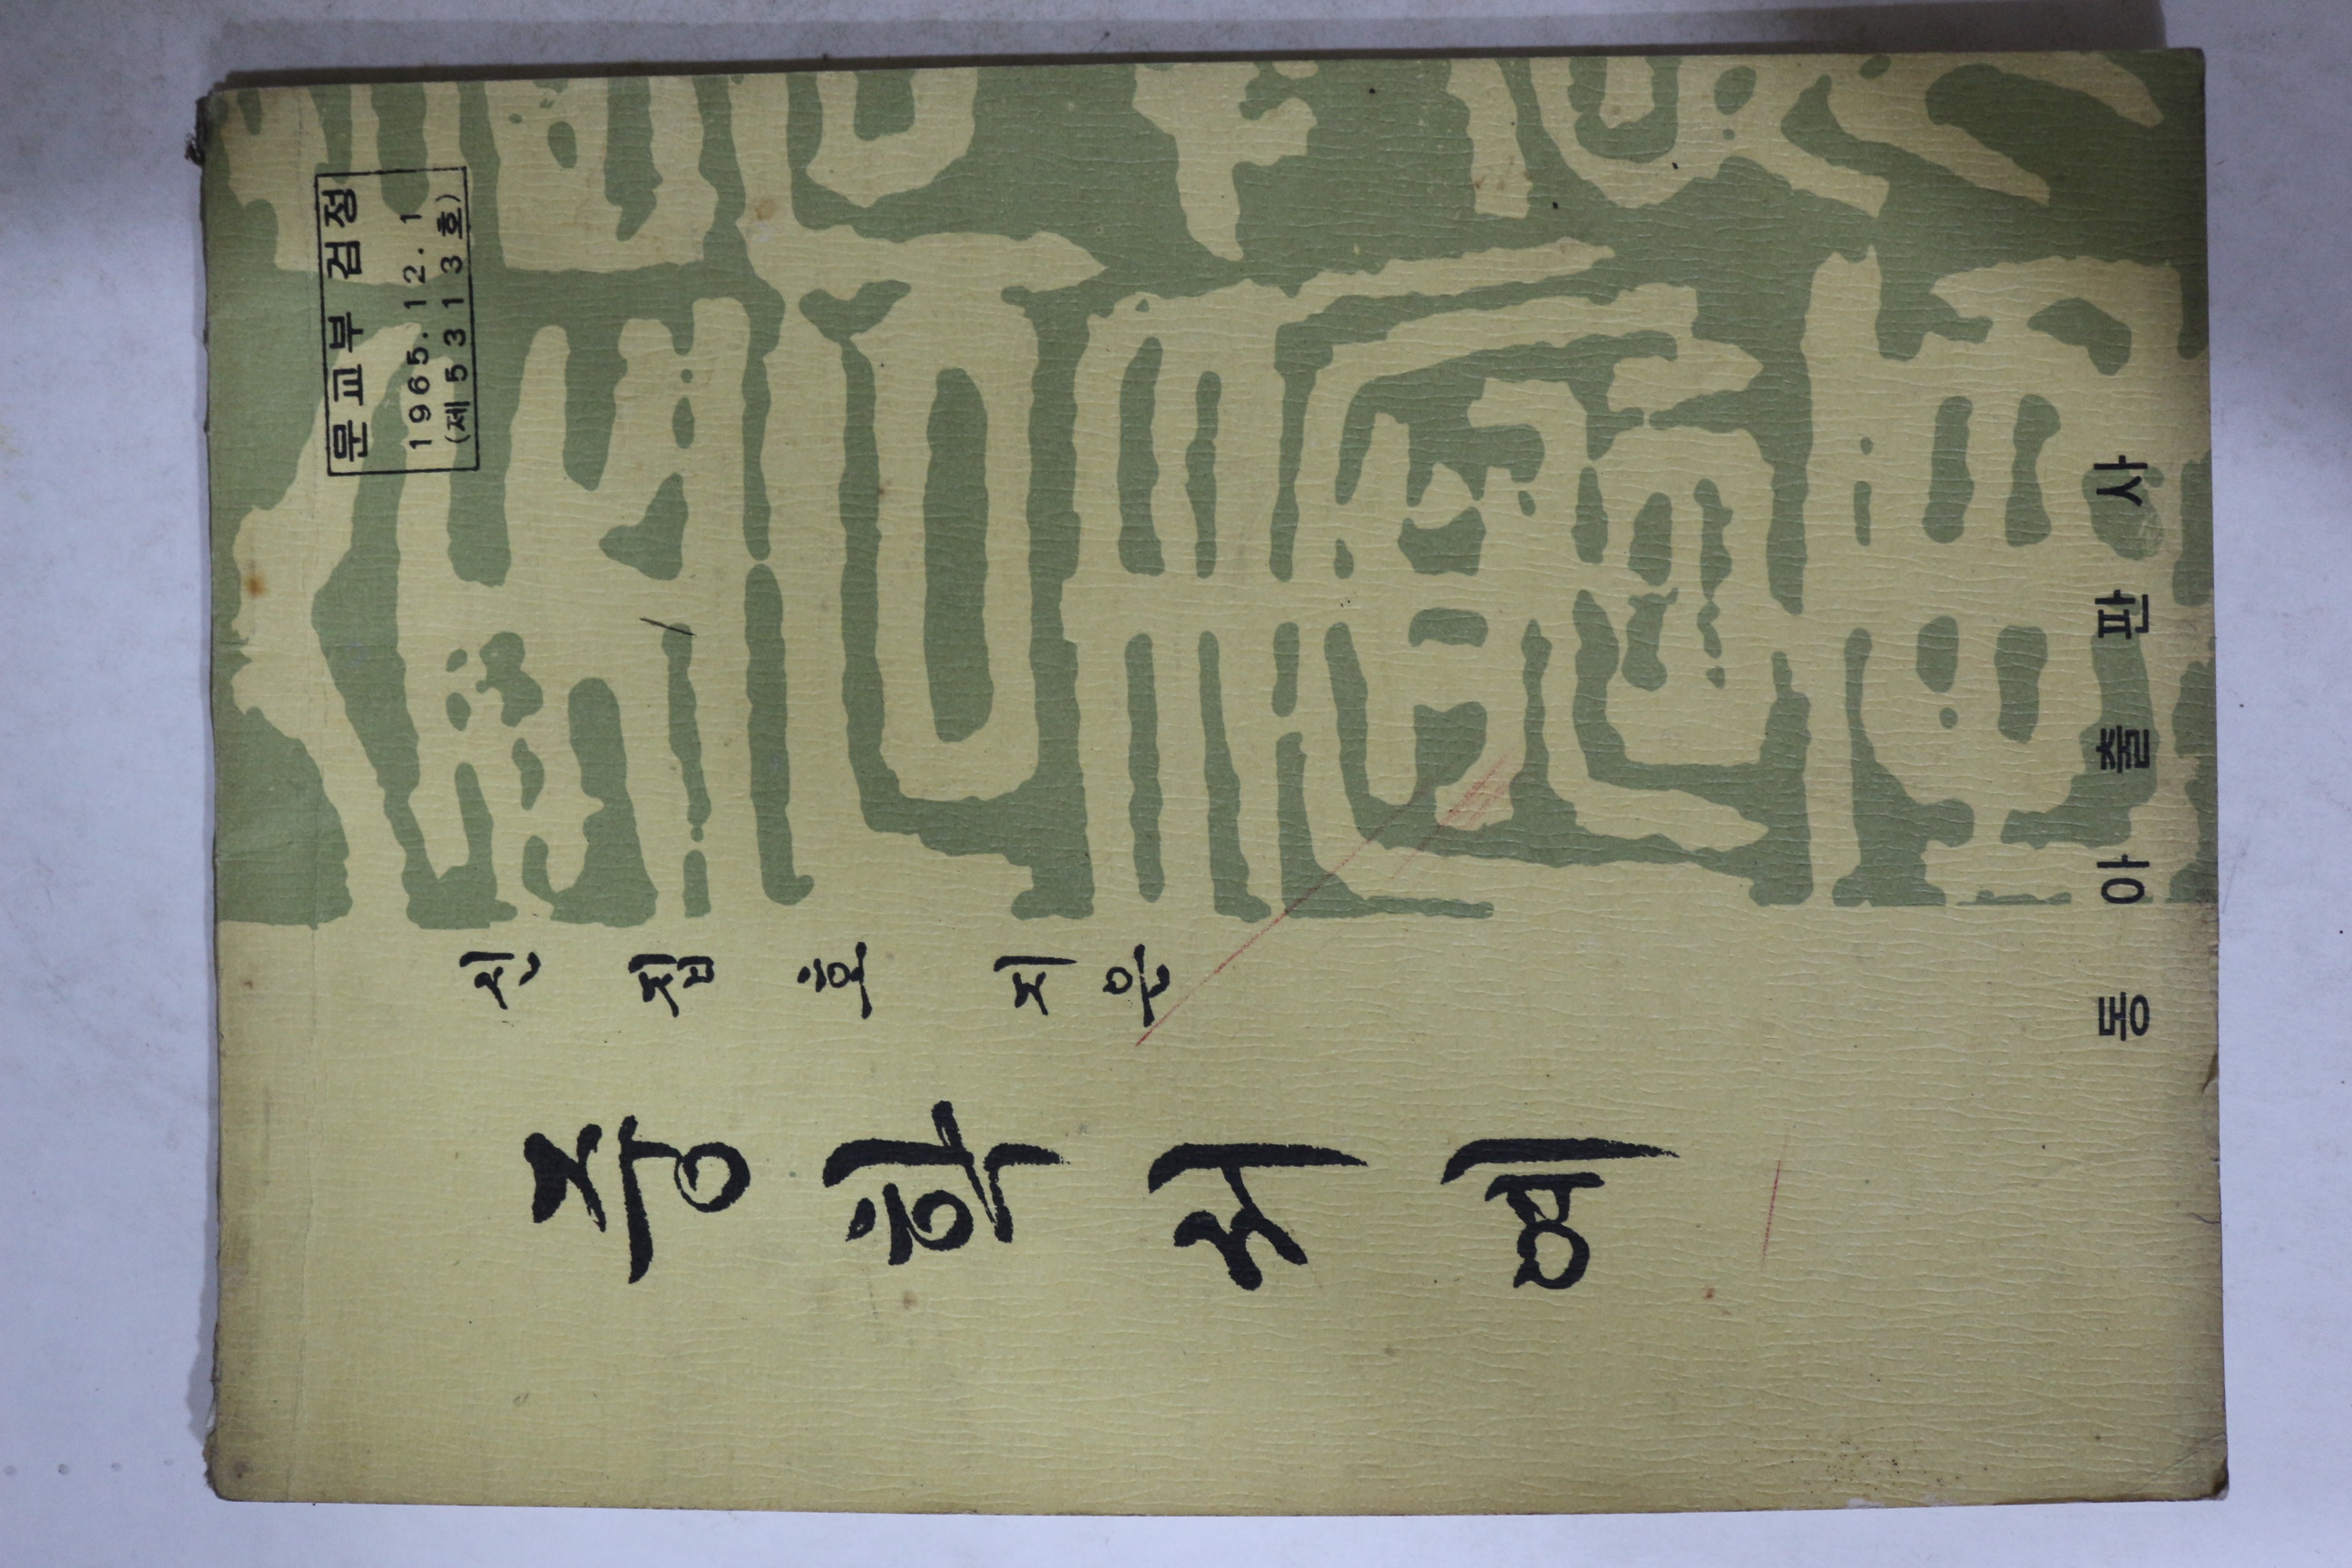 문교부 검정
1965.12.1
(제5313호)
신집호 지은
중학서예
동아출판사